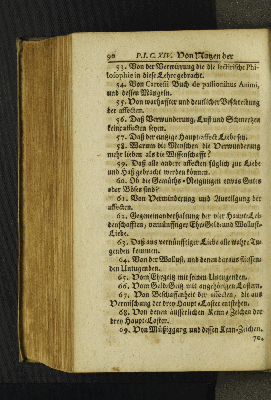 90 P. I. C. XIV. Von Natzen der
53. Von der Verwirrung die die sectirische Phi-
losophie in diese Lehre gebracht.
54. Von Cartesii Buch de passionibus Animi,
und dessen Mängeln.
55. Von warhaffter und deutlicher Beschreibung
der affecten.
56. Daß Verwunderung, Lust und Schmertzen
keine affecten seyen.
57. Daß der eintzige Haupt-affect Liebe sey.
58. Warum die Menschen die Verwunderung
mehr lieben als die Wissenschafft?
59. Daß alle andere affecten füglich zur Liebe
und Haß gebracht werden können.
60. Ob die Gemüths-Neigungen etwas Gutes
oder Böses sind?
61. Von Verminderung und Austilgung der
affecten.
62. Gegeneinanderhaltung der vier Haupt-Lei-
denschafften, vernünfftiger Ehr-Geld- und Wollust-
Liebe.
63. Daß aus vernünfftiger Liebe alle wahre Tu-
genden kommen.
64. Von der Wollust, und denen daraus fliessen-
den Untugenden.
65. Vom Ehrgeitz mit seinen Untugenden.
66. Vom Geld-Geitz mit angehörigen Lastern.
67. Von Beschaffenheit der affecten, die aus
Vermischung der drey Haupt-Laster entstehen.
68. Von denen äusserlichen Kenn-Zeichen der
drey Haupt-Laster.
69. Von Müßiggang und dessen Kenn-Zeichen.
70.